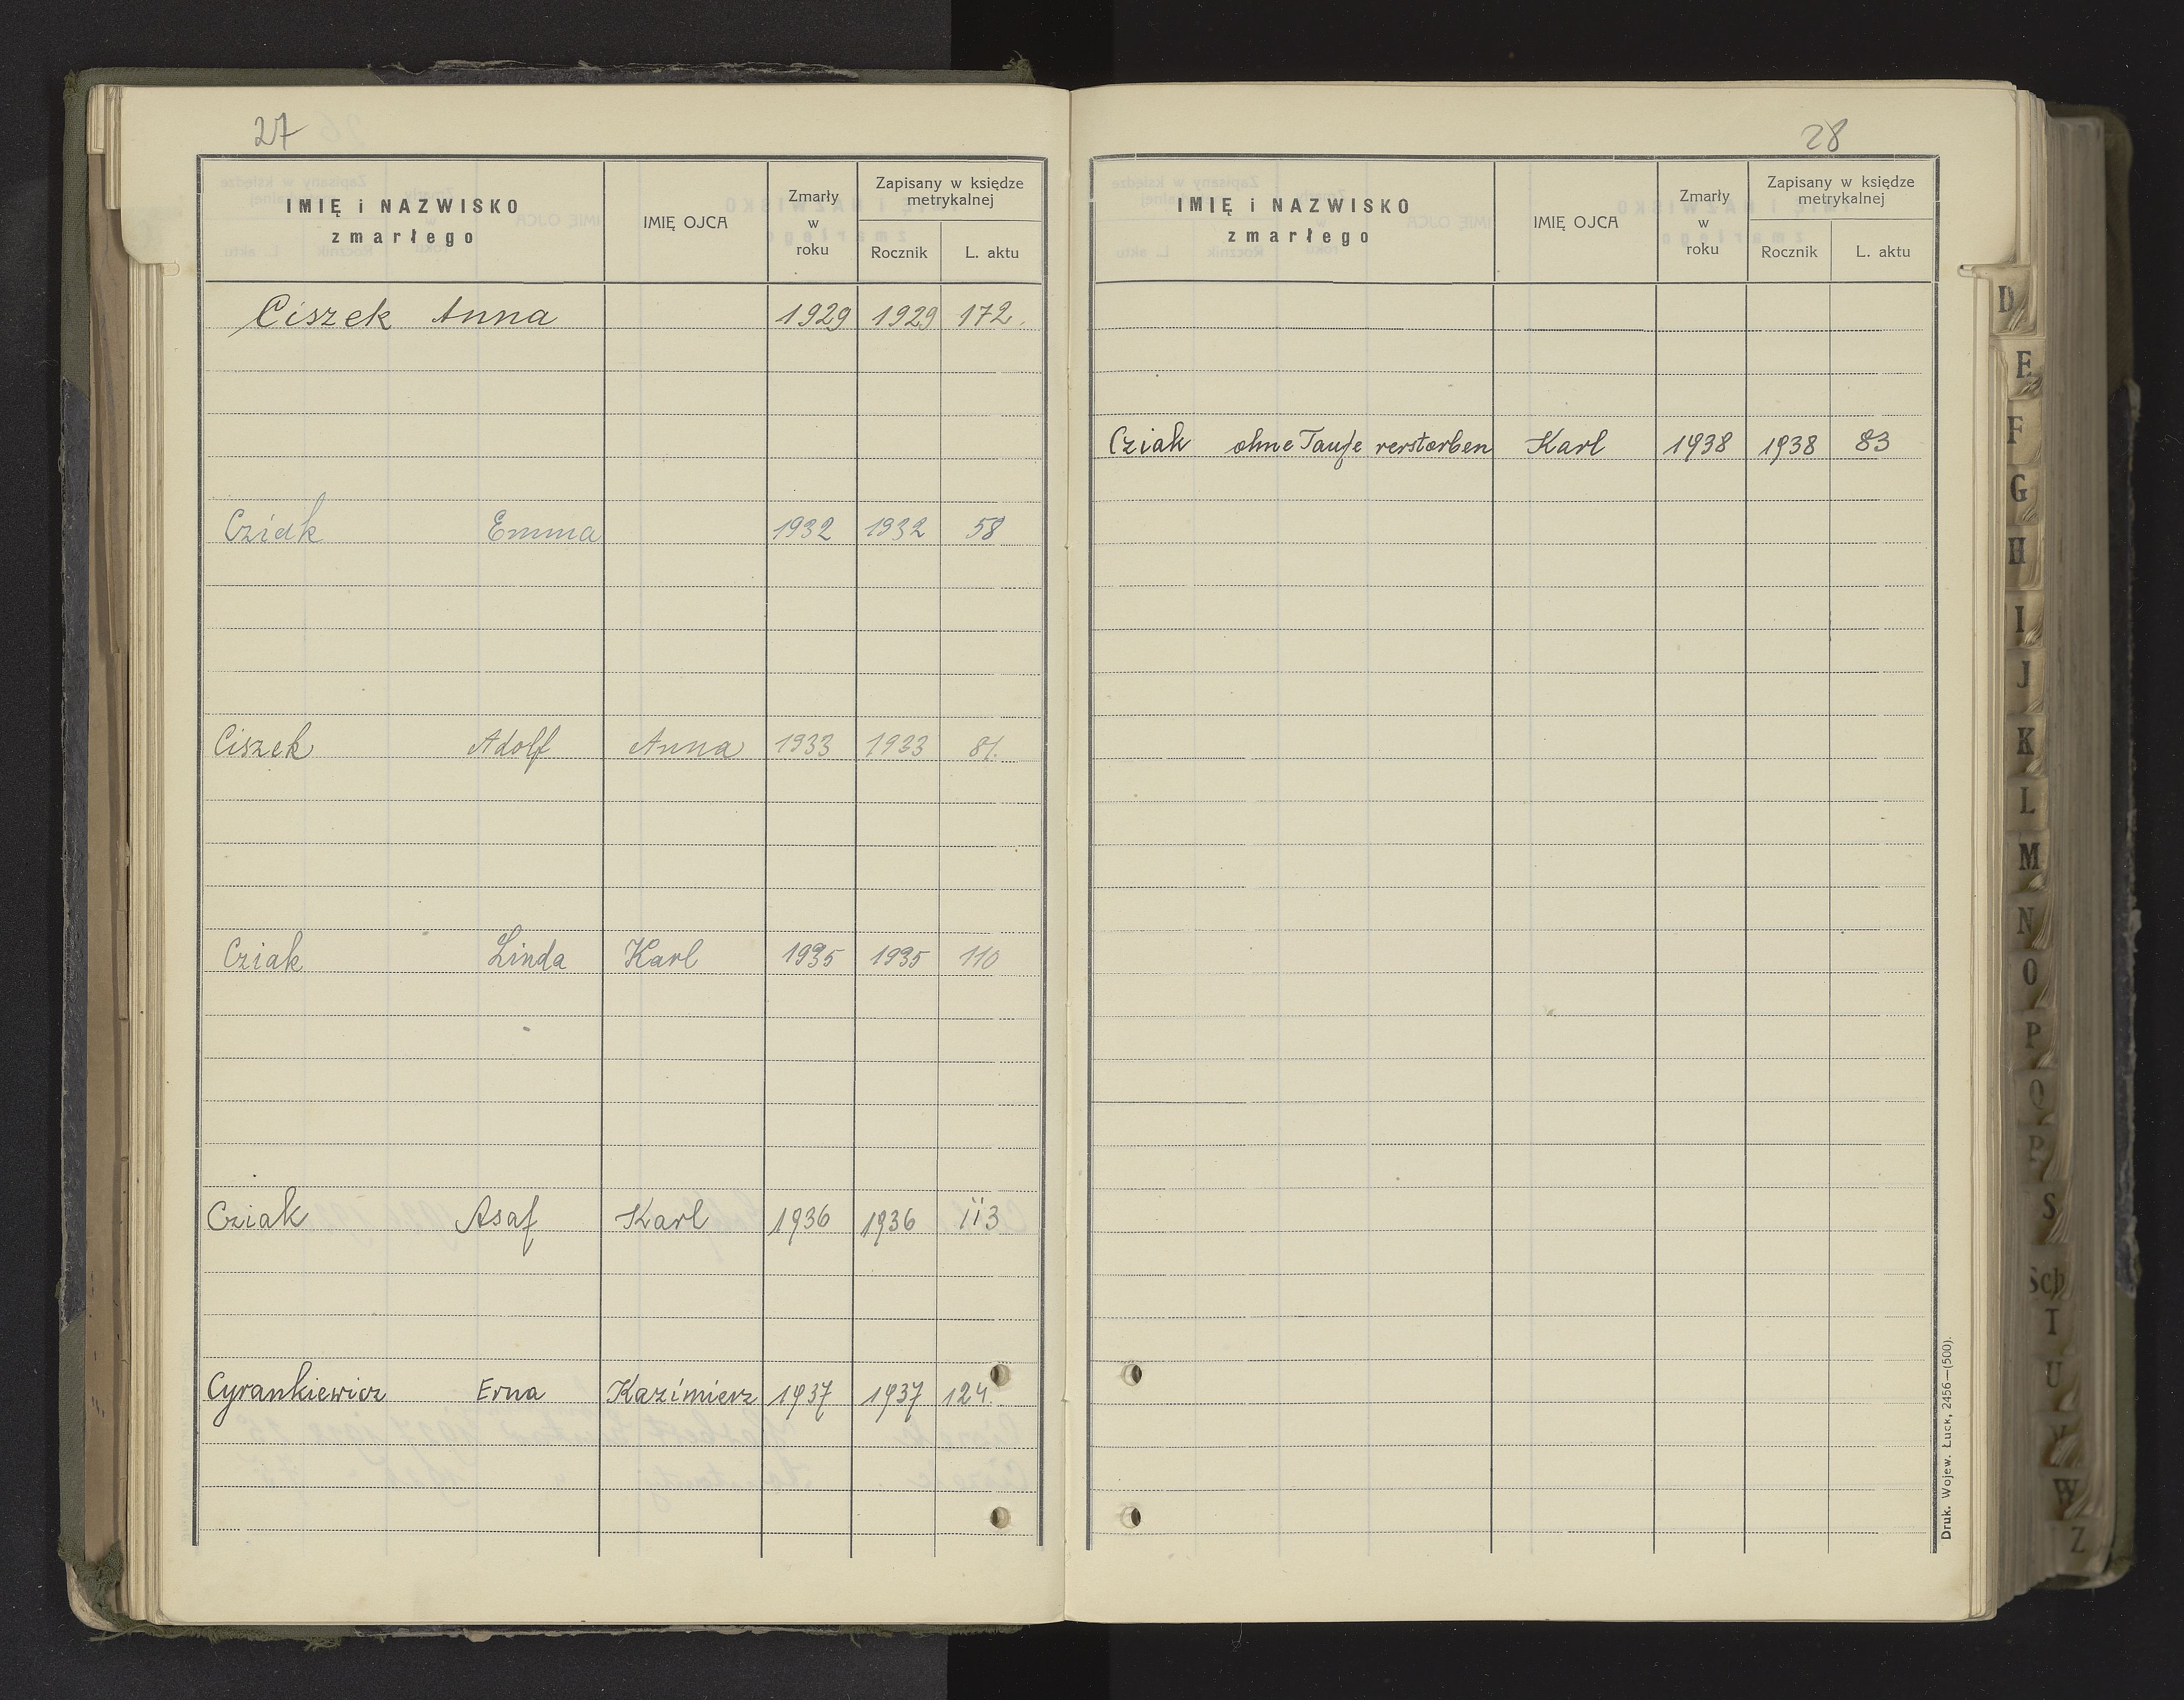 27
IMIĘ i NAZWISKO zmarłego | IMIĘ OJCA | Zmarły w roku | Zapisany w księdze metrykalnej | Rocznik | L. aktu
Ciszek Anna 1929 1929 172.
Cziak Emma 1932 1932 58
Ciszek Adolf Anna 1933 1933 81.
Cziak Linda Karl 1935 1935 110
Cziak Asaf Karl 1936 1936 113
Cyrankiewicz Erna Kazimierz 1937 1937 124.
28
IMIĘ i NAZWISKO zmarłego | IMIĘ OJCA | Zmarły w roku | Zapisany w księdze metrykalnej | Rocznik | L. aktu
Cziak ohne Taufe verstorben Karl 1938 1938 83
Druk. Wojew. Łuck, 2456—(500).
D
E
F
G
H
I
J
K
L
M
N
O
P
Q
S
Sch
U
W
Z